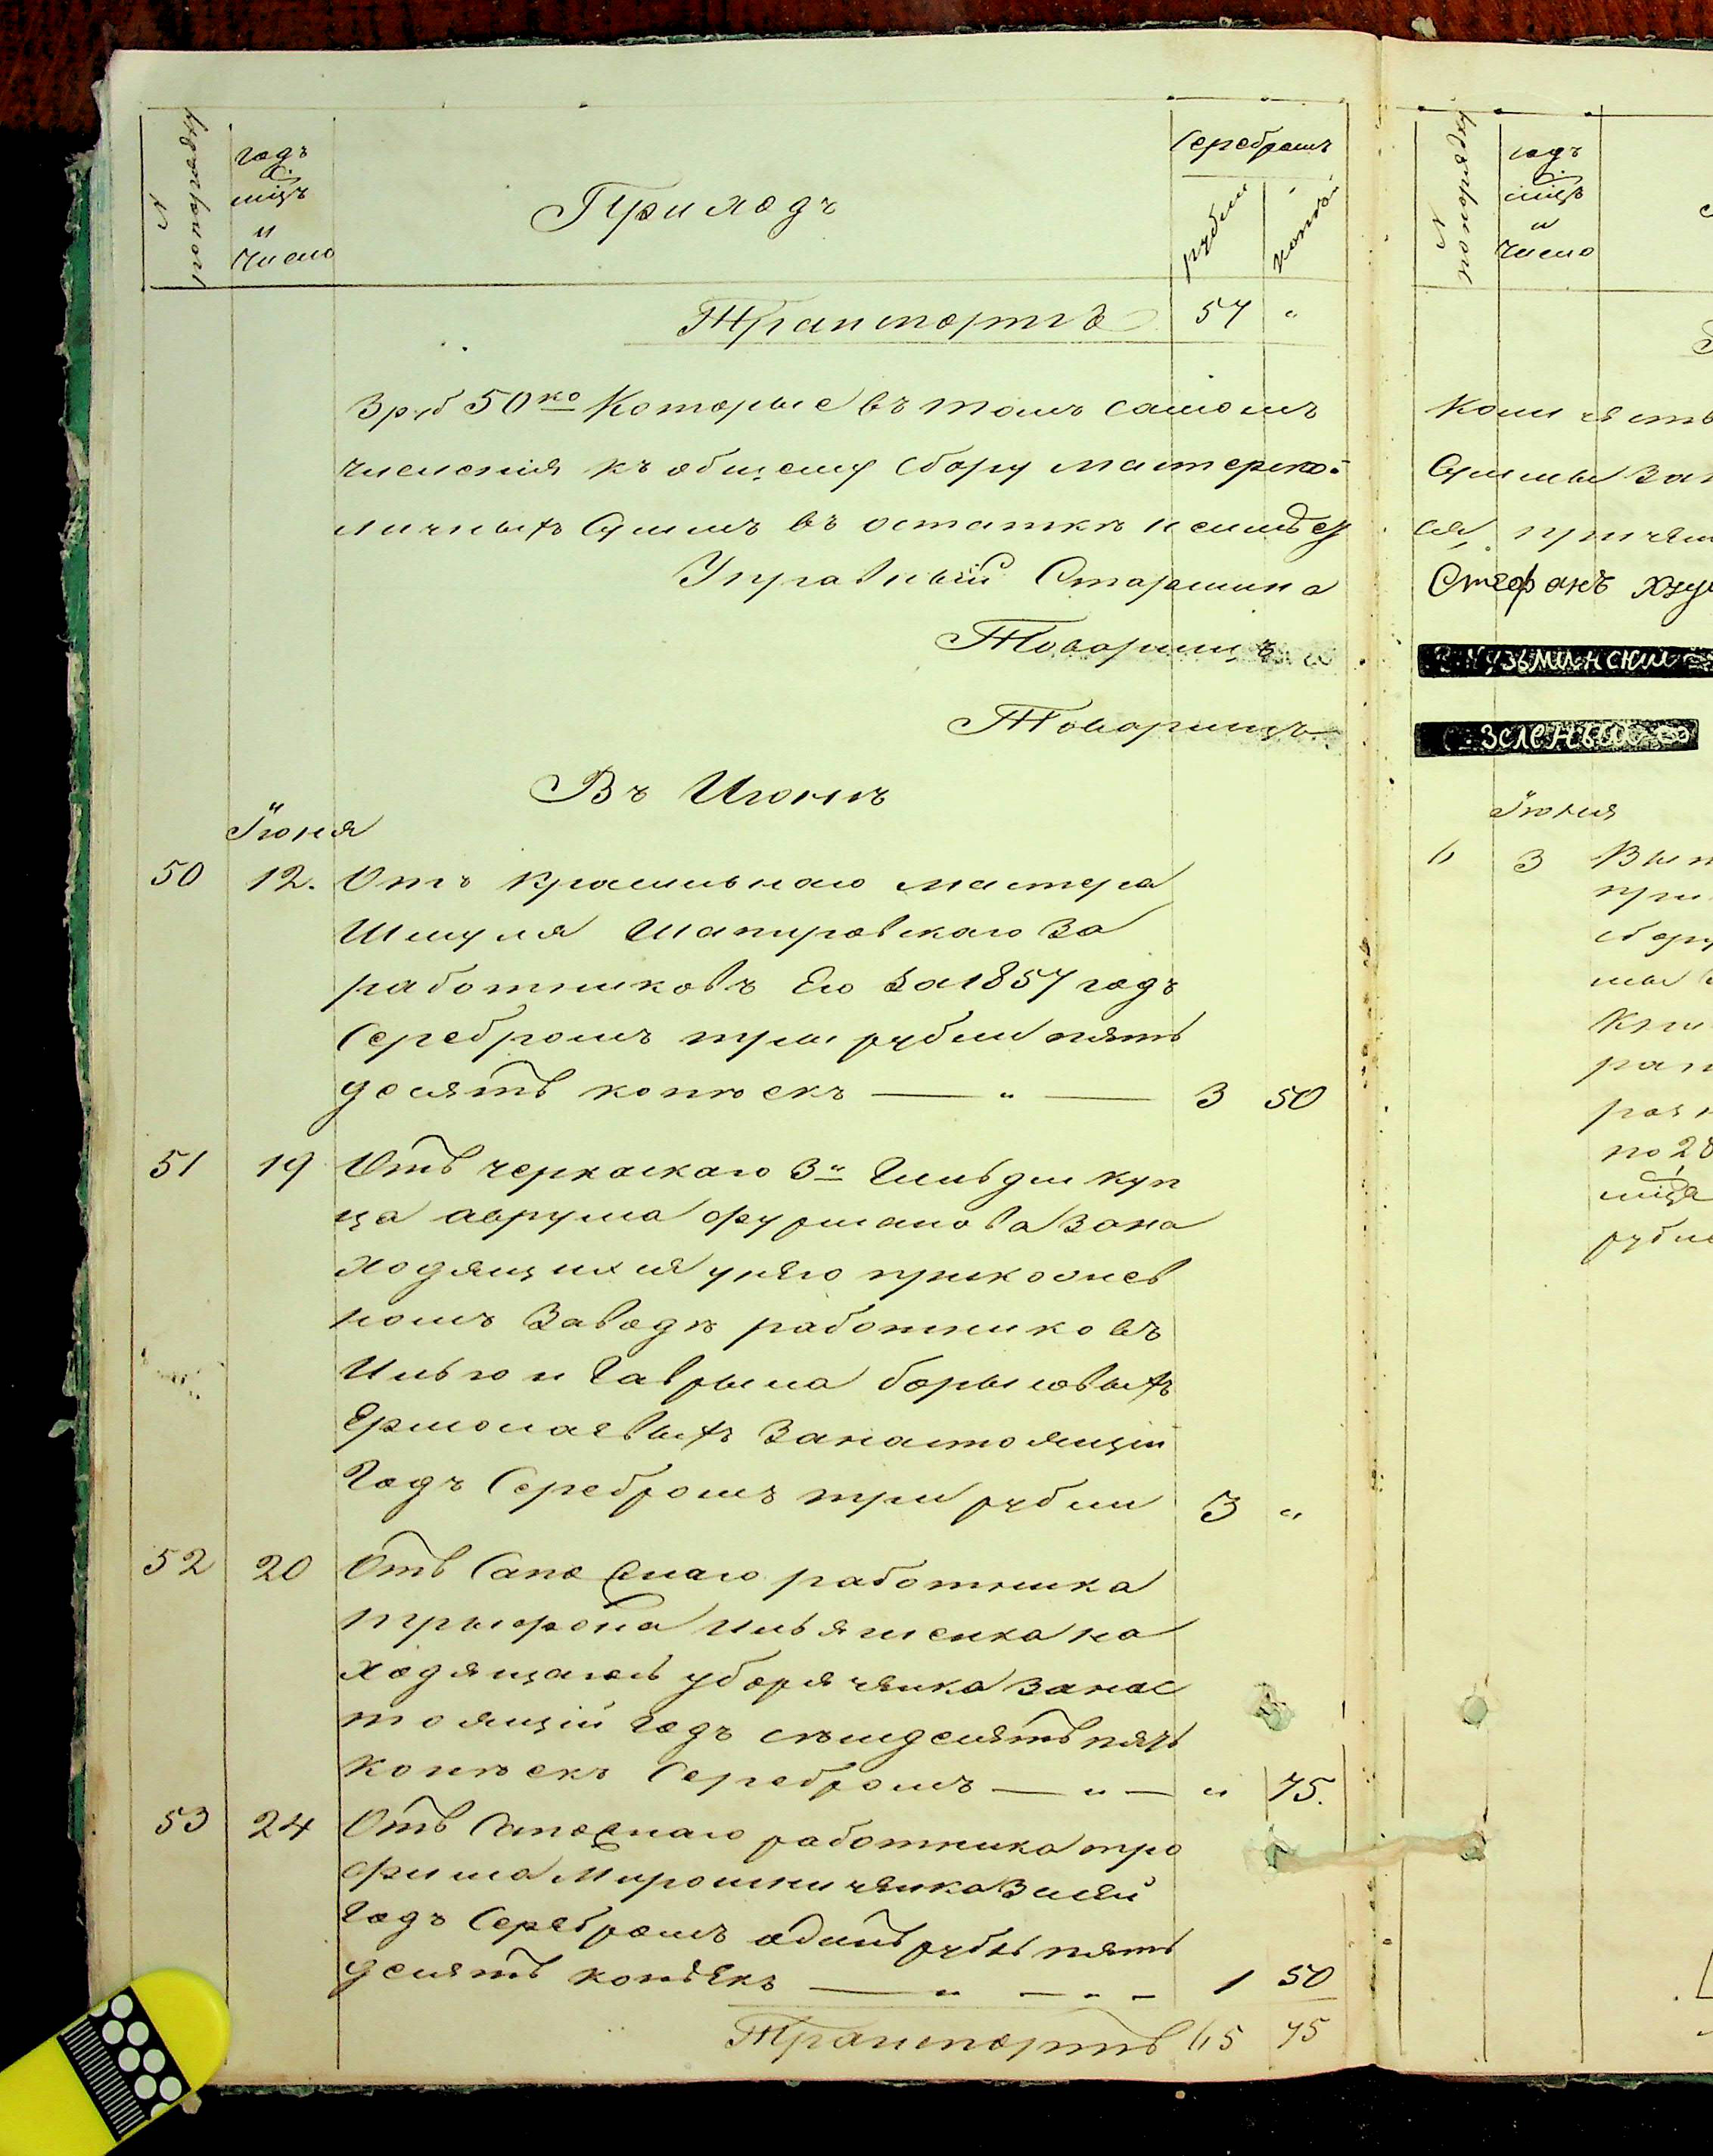 № попорядку
годъ
мѣцъ
и
число
Приходъ
Серебромъ
рубли
копѣй
Транспортъ 57 "
3 руб 50 ко Которые въ томъ самомъ
численія къ общему сбору мастерско-
личныхъ Суммъ въ остаткѣ
Управный Старшина
Товарищъ
Товарищъ
Въ Июнѣ
Іюня
50 12. Отъ красильнаго мастера
Шмуля Шапировскаго За
работниковъ Его за 1857 годъ
Серебромъ три рубли пять
десятъ копѣекъ — " — 3 50
51 19 Отъ черкаскаго 3й Гильдіи куп
ца аврума фурманова Зана
ходящихся унего прикоснев
номъ Заводѣ работниковъ
Илью и Гаврыла борысовыхъ
Ермолаевыхъ Занастоящій
Годъ Серебромъ три рубли 3 "
52 20 Отъ Сапожнаго работника
трыфона ильяшенка на
ходящагось уборяченка Занас
тоящій Годъ семдесятъ пять
копѣекъ Серебромъ — " — " 75.
53 24 Отъ Сапожнаго работника тро
фима Мирошниченка Засей
Годъ Серебромъ одинъ рубль пять
десятъ копѣекъ — " — " — 1 50
Транспортъ 65 75
№ попорядку
годъ
мѣцъ
и
число
Суммы
Стефанъ
Кузьминский
Зеленый
Іюня
6 3
по 28
мѣця